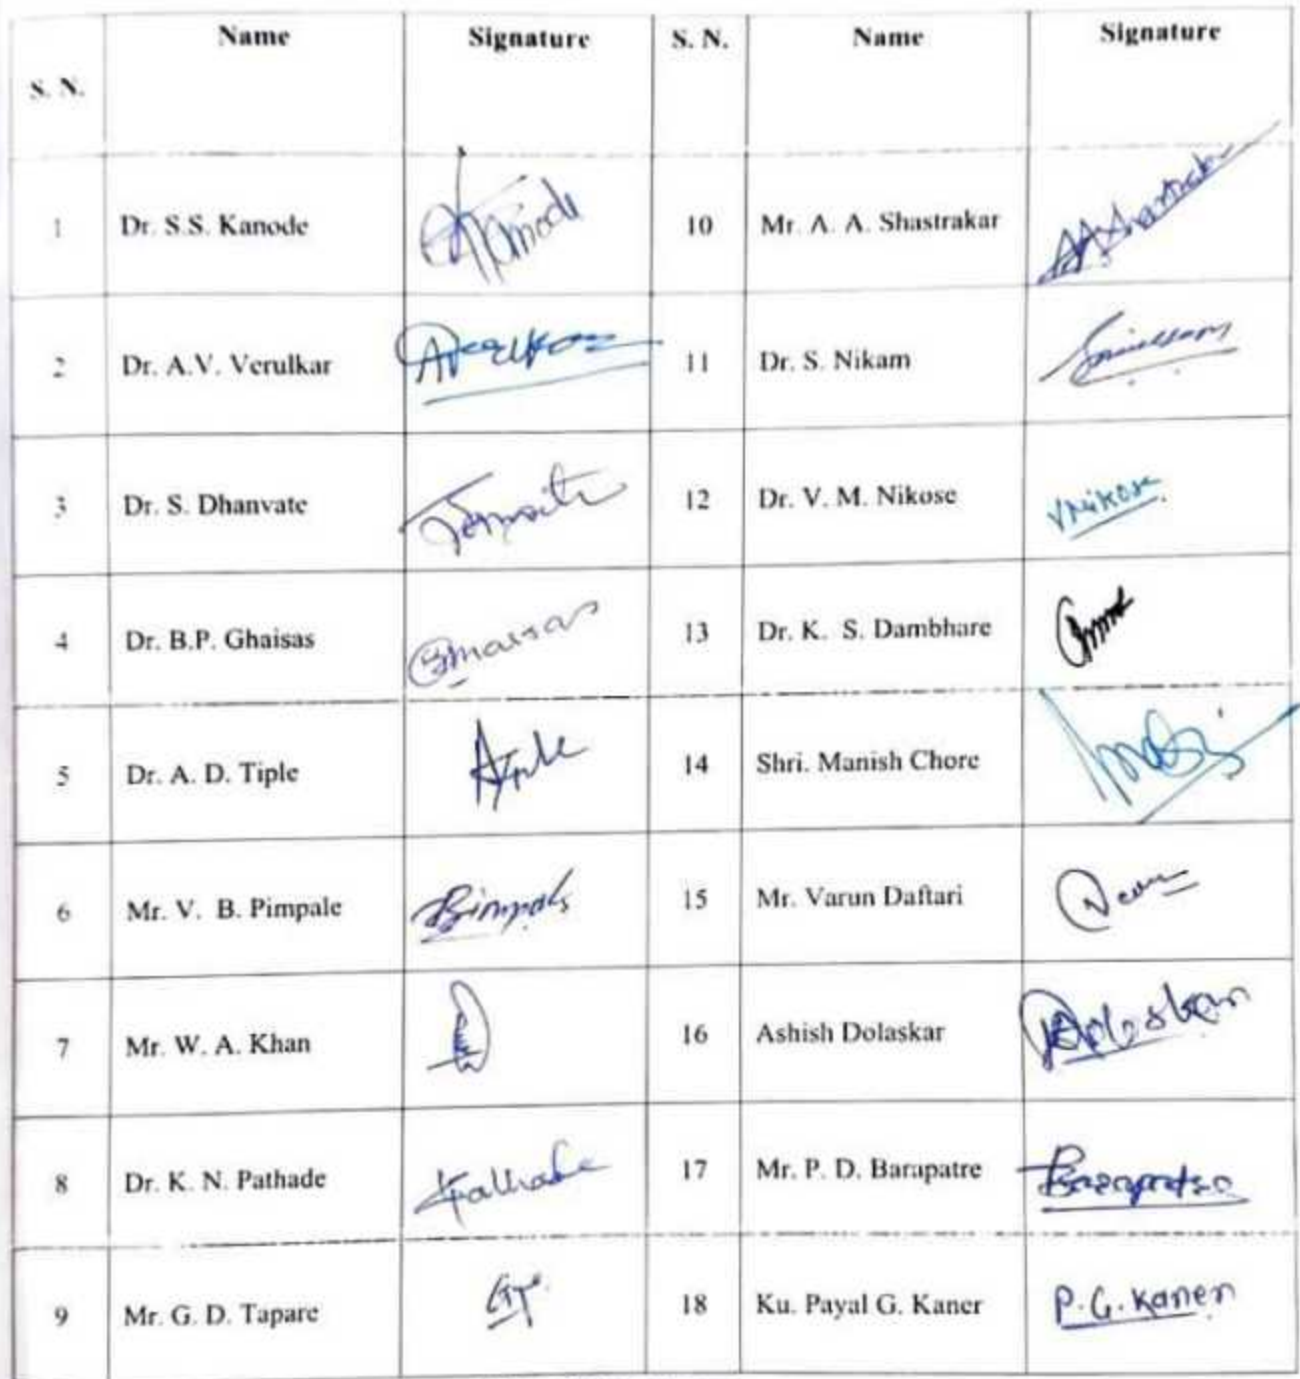 S. N. Name Signature S. N. Name Signature
1 Dr. S.S. Kanode Kanode 10 Mr. A. A. Shastrakar AAShastrakar
2 Dr. A.V. Verulkar 11 Dr. S. Nikam
3 Dr. S. Dhanvate 12 Dr. V. M. Nikose VNikose
4 Dr. B.P. Ghaisas 13 Dr. K. S. Dambhare
5 Dr. A. D. Tiple 14 Shri. Manish Chore
6 Mr. V. B. Pimpale 15 Mr. Varun Daftari
7 Mr. W. A. Khan 16 Ashish Dolaskar
8 Dr. K. N. Pathade 17 Mr. P. D. Barapatre
9 Mr. G. D. Tapare 18 Ku. Payal G. Kaner P.G.Kaner